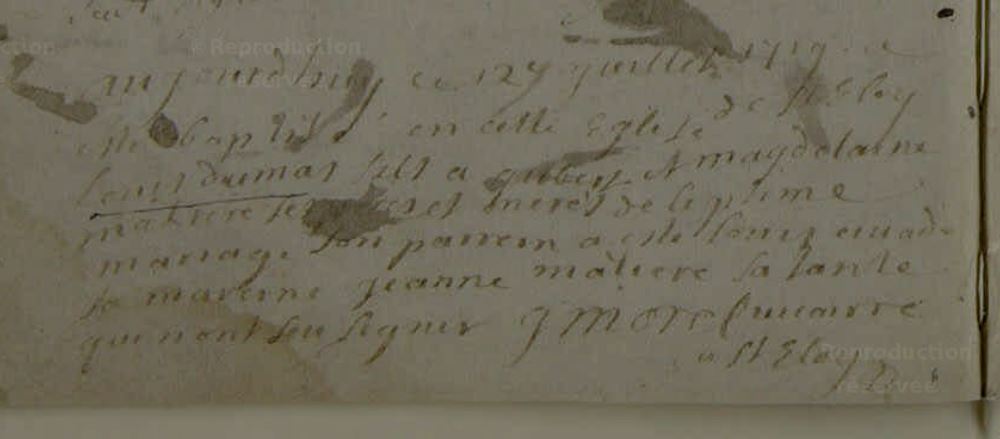 Reproduction
aujourdhuy ce 12e juillet 1719 a
este baptisé en cette Eglise de St Eloy
Louis dumas fils a et magdelaine
matiere ses peres et meres de legitime
mariage son parrein a este louis
sa mareine jeanne matiere sa tante
qui nont seu signer vicairre
a St Eloy
Reproduction
réservée